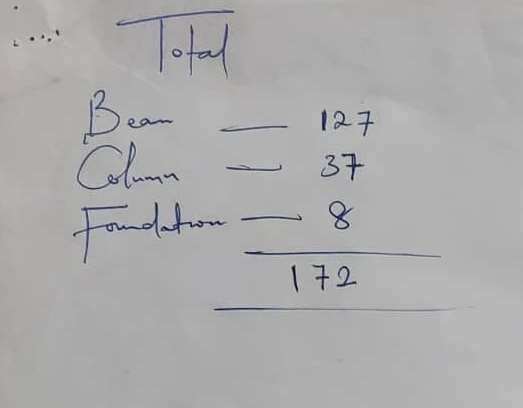 Total
Beam — 127
Column — 37
Foundation — 8
172